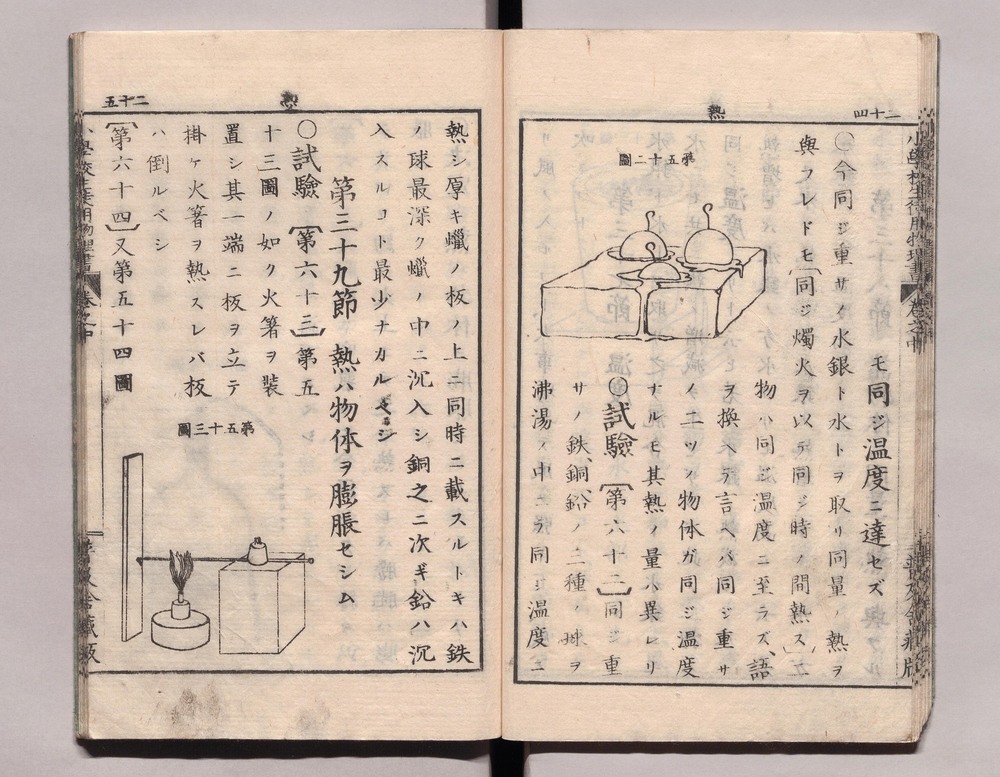 二十四
熱
モ同ジ温度ニ達セズ
〇今同ジ重サノ水銀ト水トヲ取リ同量ノ熱ヲ
與フレドモ〔同ジ燭火ヲ以テ同ジ時ノ間熱ス〕立
物ハ同ジ温度ニ至ラズ、語
ヲ換ヘテ言ヘバ同ジ重サ
ノ二ツノ物体ガ同ジ温度
ナルモ其熱ノ量ハ異レリ
〇試驗〔第六十二〕同ジ重
サノ鉄、銅、鉛ノ三種ノ球ヲ
沸湯ノ中ニテ同ジ温度ニ
第五十二圖
二十五
熱
熱シ厚キ蠟ノ板ノ上ニ同時ニ載スルトキハ鉄
ノ球最深ク蠟ノ中ニ沉入シ銅之ニ次ギ鉛ハ沉
入スルコト最少ナカルベシ
第三十九節 熱ハ物体ヲ膨脹セシム
〇試驗〔第六十三〕第五
十三圖ノ如ク火箸ヲ裝
置シ其一端ニ板ヲ立テ
掛ケ火箸ヲ熱スレバ板
ハ倒ルベシ
〔第六十四〕又第五十四圖
第五十三圖